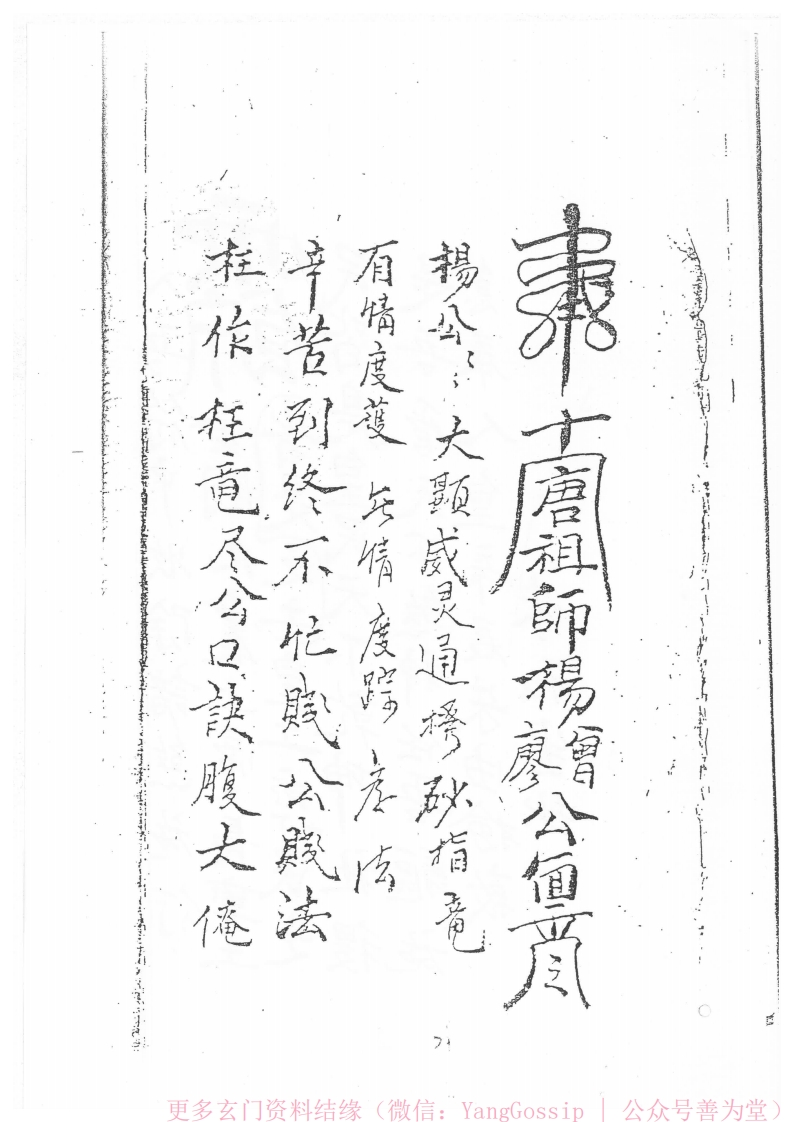 唐祖師楊曾廖公
楊公〻大顯威灵通 砂指竜
有情度護 無情度踪 法
辛苦到终不忙賤公賤法
枉作枉竜尽公口訣腹大俺
21
更多玄门资料结缘（微信：YangGossip | 公众号善为堂）